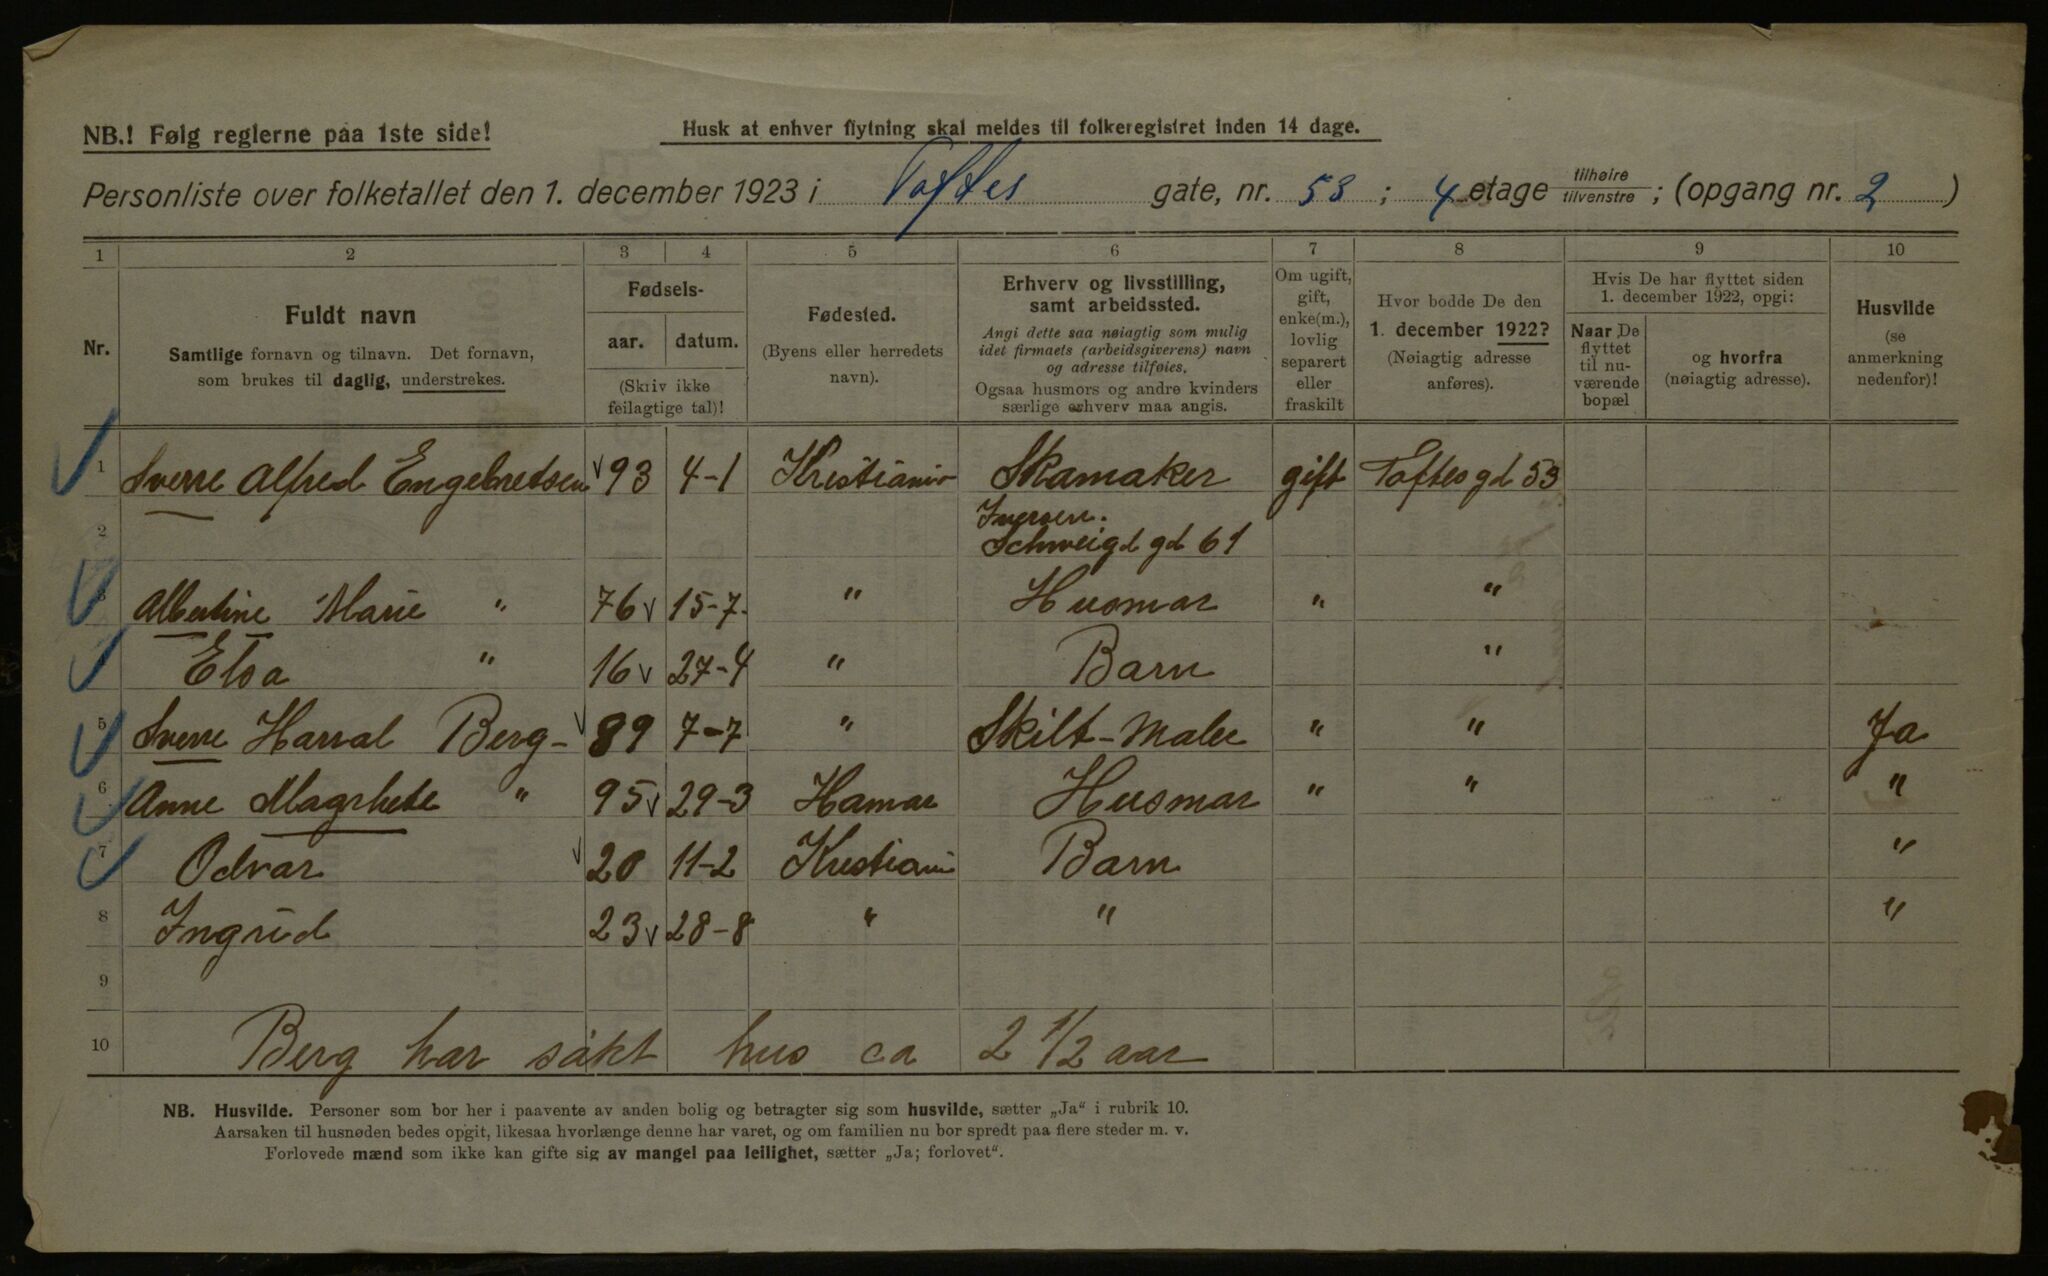 NB.! Følg reglerne paa 1ste side!
Husk at enhver flytning skal meldes til folkeregistret inden 14 dage.
Personliste over folketallet den 1. december 1923 i Toftes gate, nr. 53 ; 4 etage tilhøire tilvenstre ; (opgang nr. 2 )
1 2 3 4 5 6 7 8 9 10
Nr.
Fuldt navn
Samtlige fornavn og tilnavn. Det fornavn,
som brukes til daglig, understrekes.
Fødsels-
aar. datum.
(Skriv ikke
feilagtige tal)!
Fødested.
(Byens eller herredets
navn).
Erhverv og livsstilling,
samt arbeidssted.
Angi dette saa nøiagtig som mulig
idet firmaets (arbeidsgiverens) navn
og adresse tilføies.
Ogsaa husmors og andre kvinders
særlige erhverv maa angis.
Om ugift,
gift,
enke(m.),
lovlig
separert
eller
fraskilt
Hvor bodde De den
1. december 1922?
(Nøiagtig adresse
anføres).
Hvis De har flyttet siden
1. december 1922, opgi:
Naar De
flyttet
til nu-
værende
bopæl
og hvorfra
(nøiagtig adresse).
Husvilde
(se
anmerkning
nedenfor)!
1 Sverre Alfred Engebretsen 93 4-1 Kristiania Skamaker gift Toftes gd 53
2 Iversen.
Schweigd gd 61
3 Albertine Marie " 76 15-7- " Husmor " "
Elsa " 16 27-4 " Barn "
5 Sverre Harval Berg- 89 7-7 " Skilt-Maler " " Ja
6 Anne Magrhete " 95 29-3 Hamar Husmor " " "
7 Odvar 20 11-2 Kristiani Barn "
8 Ingrid 23 28-8 " " "
9
10 Berg har søkt hus ca 2 1/2 aar
NB. Husvilde. Personer som bor her i paavente av anden bolig og betragter sig som husvilde, sætter „Ja“ i rubrik 10.
Aarsaken til husnøden bedes opgit, likesaa hvorlænge denne har varet, og om familien nu bor spredt paa flere steder m. v.
Forlovede mænd som ikke kan gifte sig av mangel paa leilighet, sætter „Ja; forlovet“.